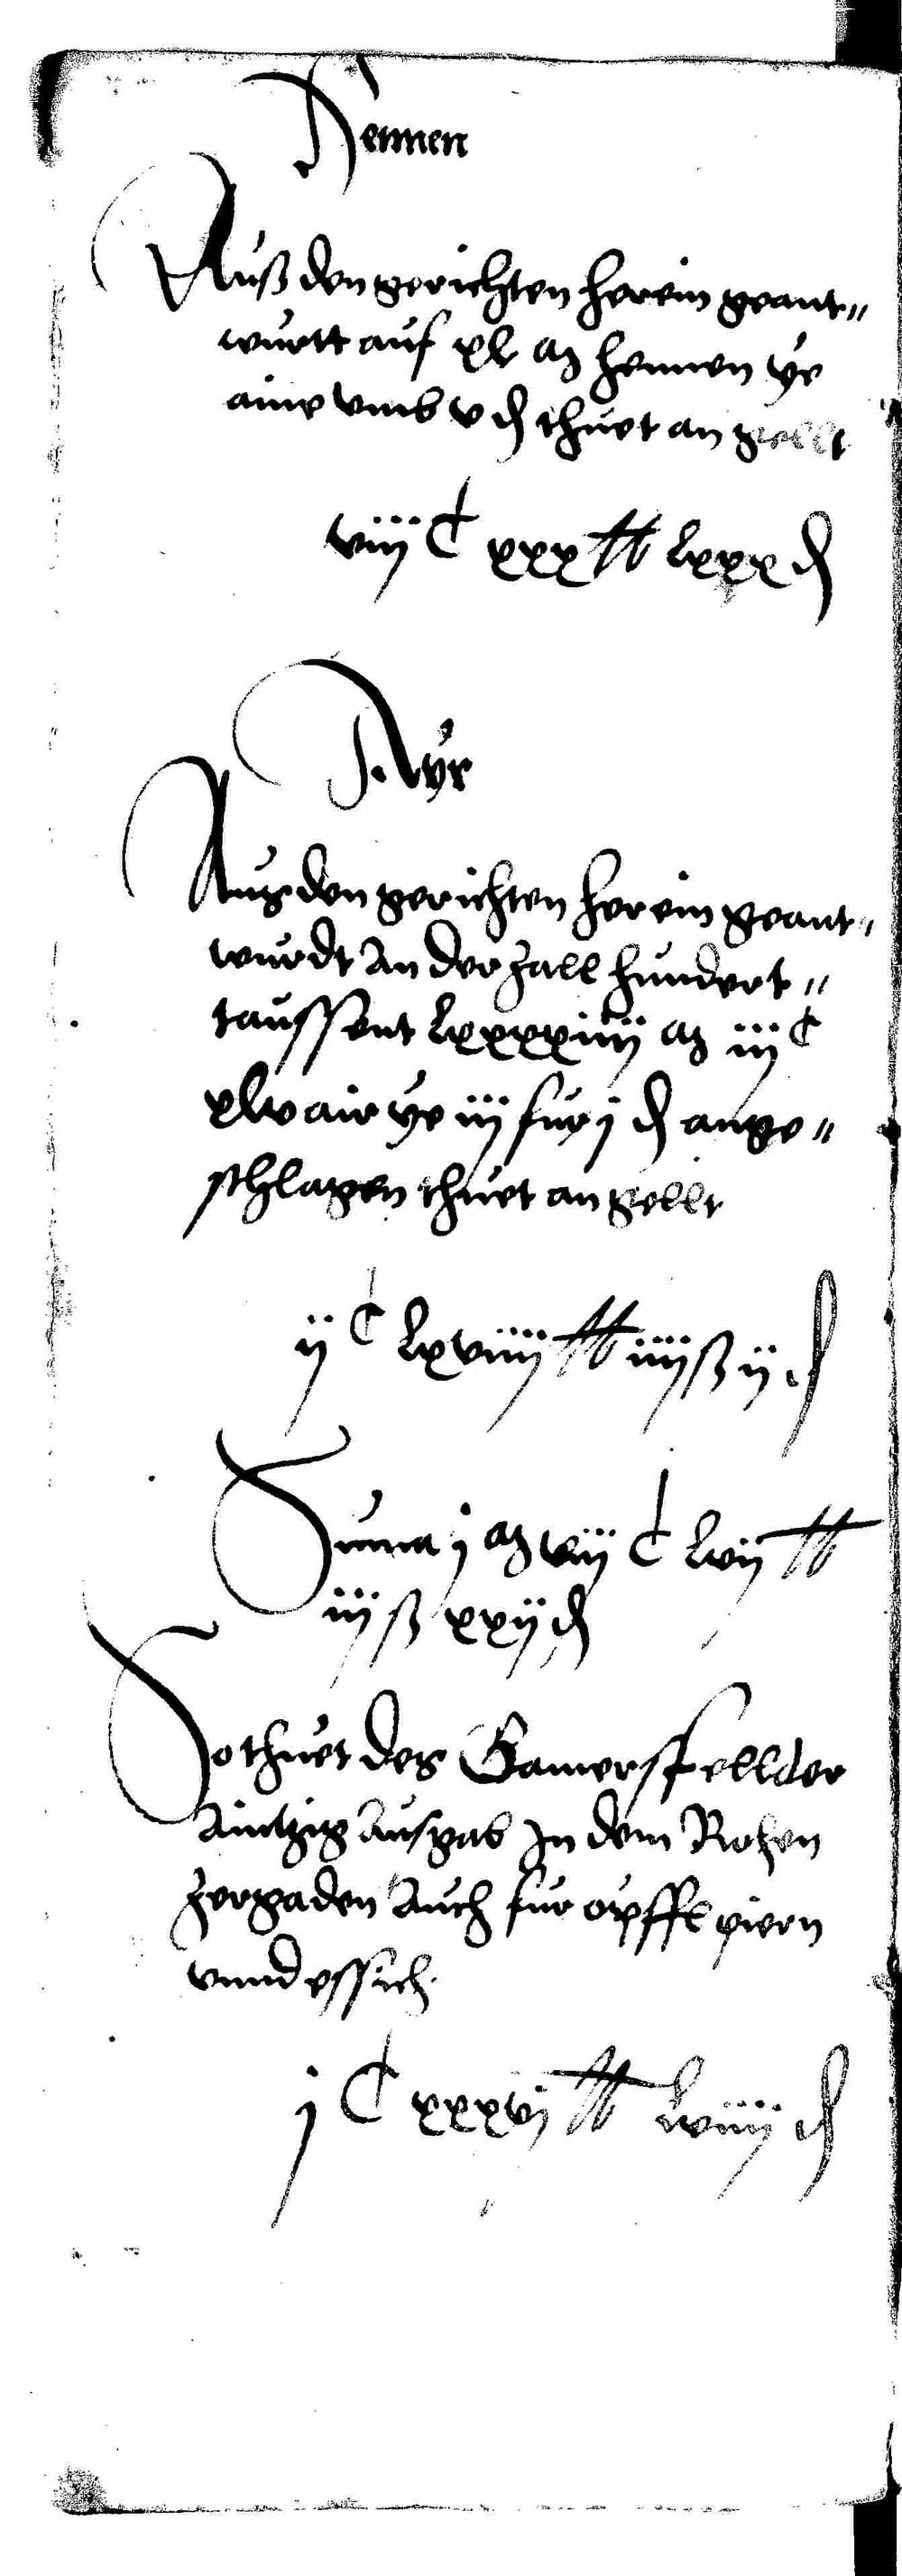 Hennen
Auß den gerichten herein geant„
wurtt auf xl m hennen ye
aine vmb v ₰ thuet an gellt
viij C xxx lb lxxx ₰
Ayr
Aus den gerichten herein geant„
wurdt An der zall hundert„
taussent lxxxxiiij m iij C
xlv air ye iij fur j ₰ ange„
schlagen thuet an gellt
ij C lxviiij lb iiij ß ij ₰
Suma j m viij C lvij lb
iij ß xxij ₰
So thuet des Gamersfellder
Aintzig Ausgab In dem Rohen
zergaden Auch fur öpffl piern
vnnd essich
j C xxxvj lb lviiij ₰